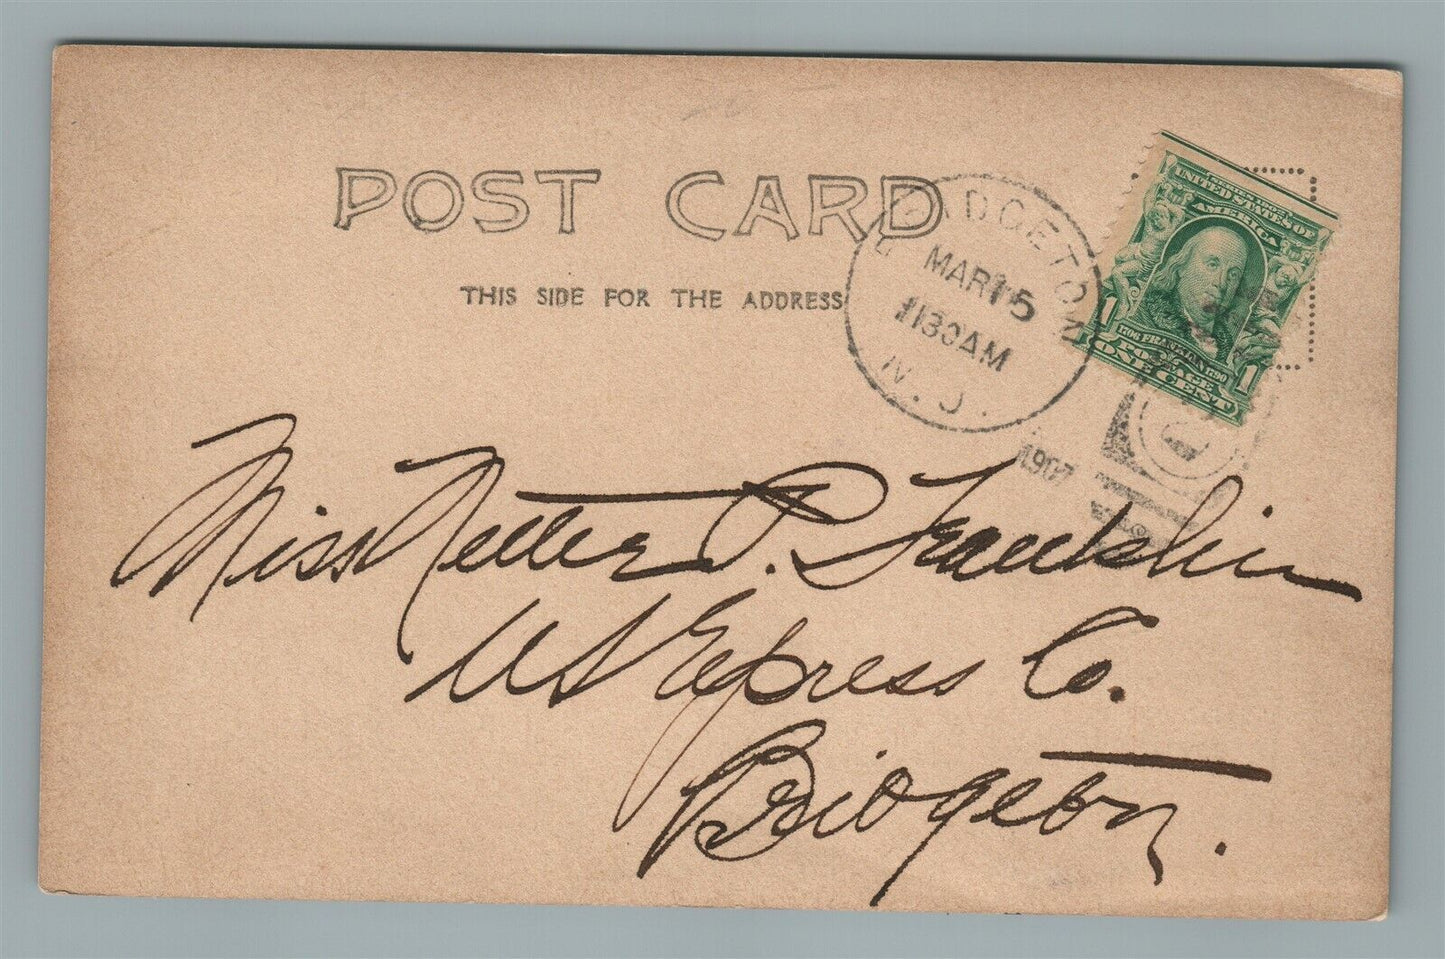 POST CARD
THIS SIDE FOR THE ADDRESS
BRIDGETON
MAR 15
1130AM
N.J.
1907
SERIES 1902
UNITED STATES OF
AMERICA
1706 FRANKLIN 1790
POSTAGE
1 ONE CENT 1
Miss Nettie P. Franklin
US Express Co.
Bridgeton.